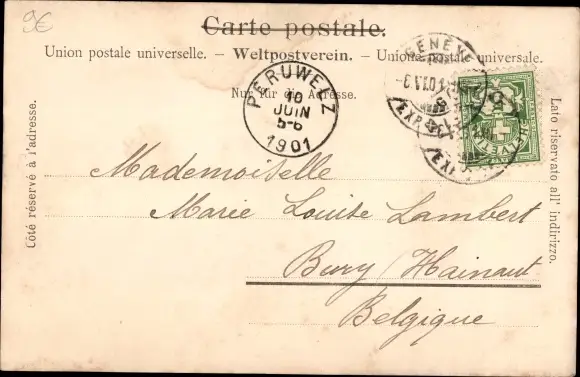 9€
Carte postale.
Union postale universelle. – Weltpostverein. – Unione postale universale.
Nur für die Adresse.
Côté réservé à l'adresse.
Lato riservato all' indirizzo.
PERUWELZ
10
JUIN
5-6
1901
GENÈVE
EXP.
HELVETIA
Mademoiselle
Marie Louise Lambert
Bury (Hainaut
Belgique